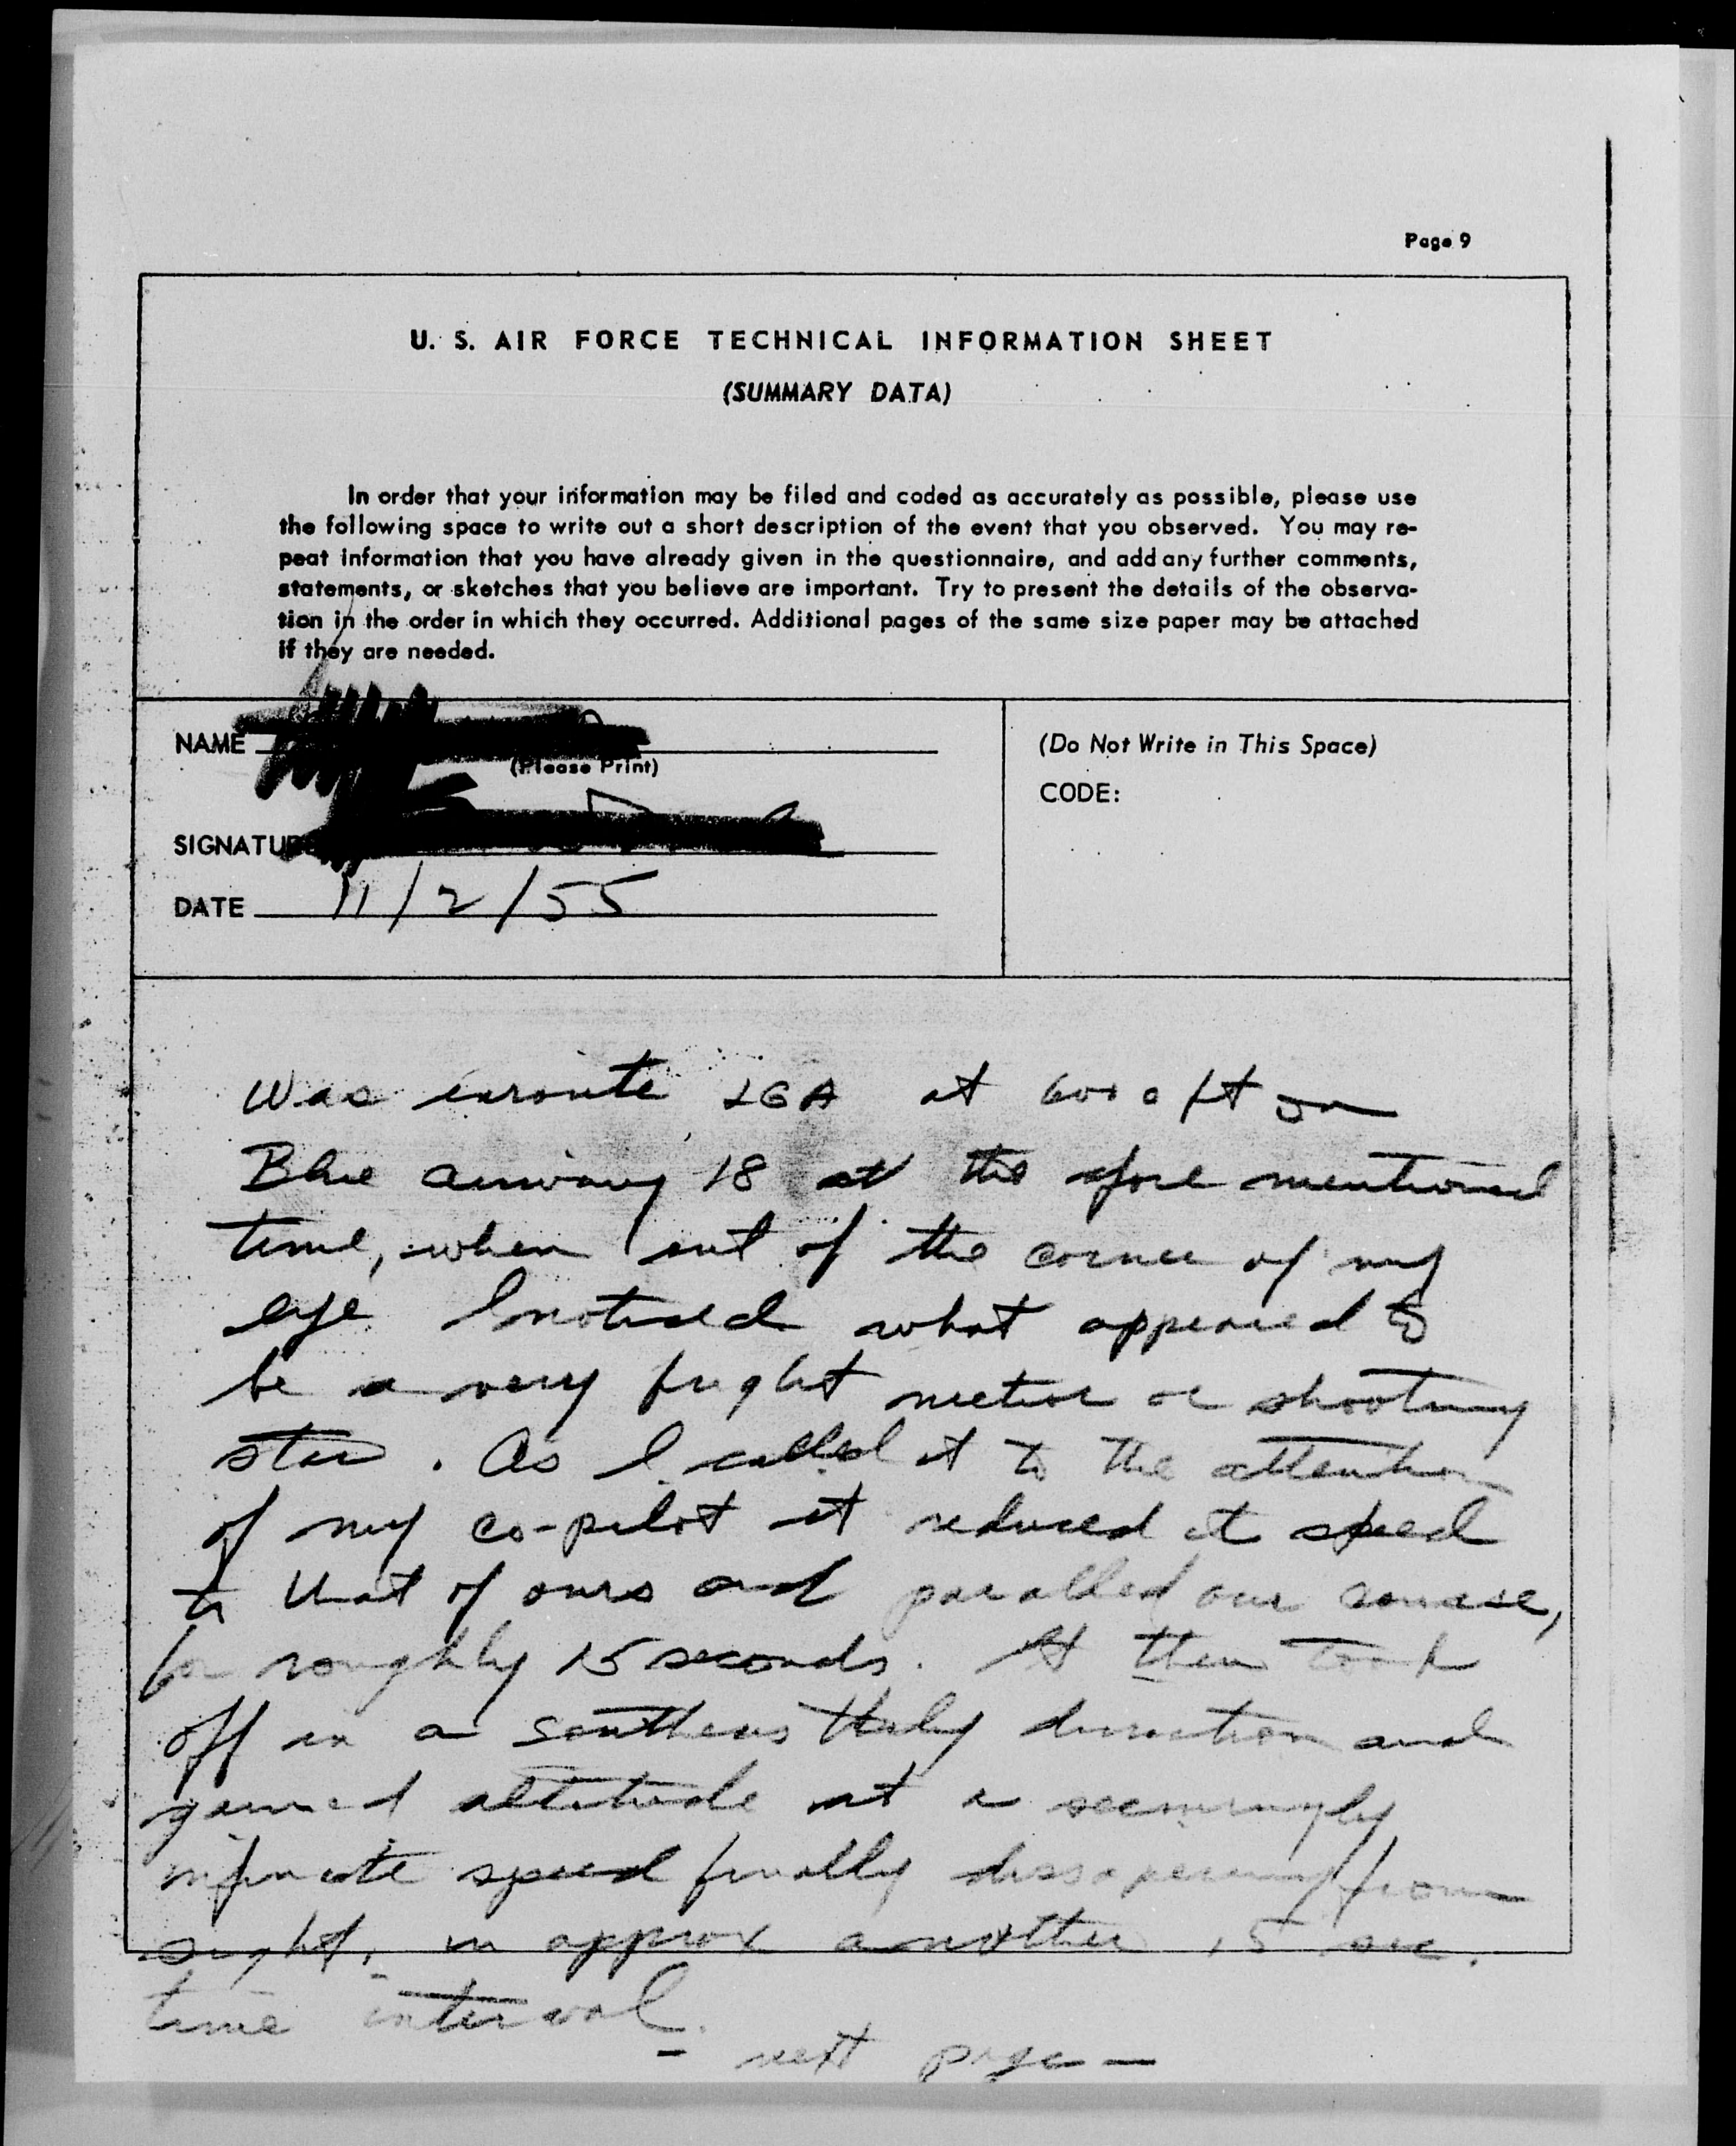 Page 9
U. S. AIR FORCE TECHNICAL INFORMATION SHEET
(SUMMARY DATA)
In order that your information may be filed and coded as accurately as possible, please use
the following space to write out a short description of the event that you observed. You may re-
peat information that you have already given in the questionnaire, and add any further comments,
statements, or sketches that you believe are important. Try to present the details of the observa-
tion in the order in which they occurred. Additional pages of the same size paper may be attached
if they are needed.
NAME
(Please Print)
(Do Not Write in This Space)
CODE:
SIGNATURE
DATE 11/2/55
Was enroute LGA at 6000 ft on
Blue airway 18 at the afore mentioned
time, when out of the corner of my
eye I noticed what appeared to
be a very bright meteor or shooting
star. As I called it to the attention
of my co-pilot it reduced it speed
to that of ours and paralled our course,
for roughly 15 seconds. It then took
off in a southeastherly direction and
gained altitude at a seemingly
infinite speed finally dissapearing from
sight, in approx another 15 sec.
time interval.
- next page -